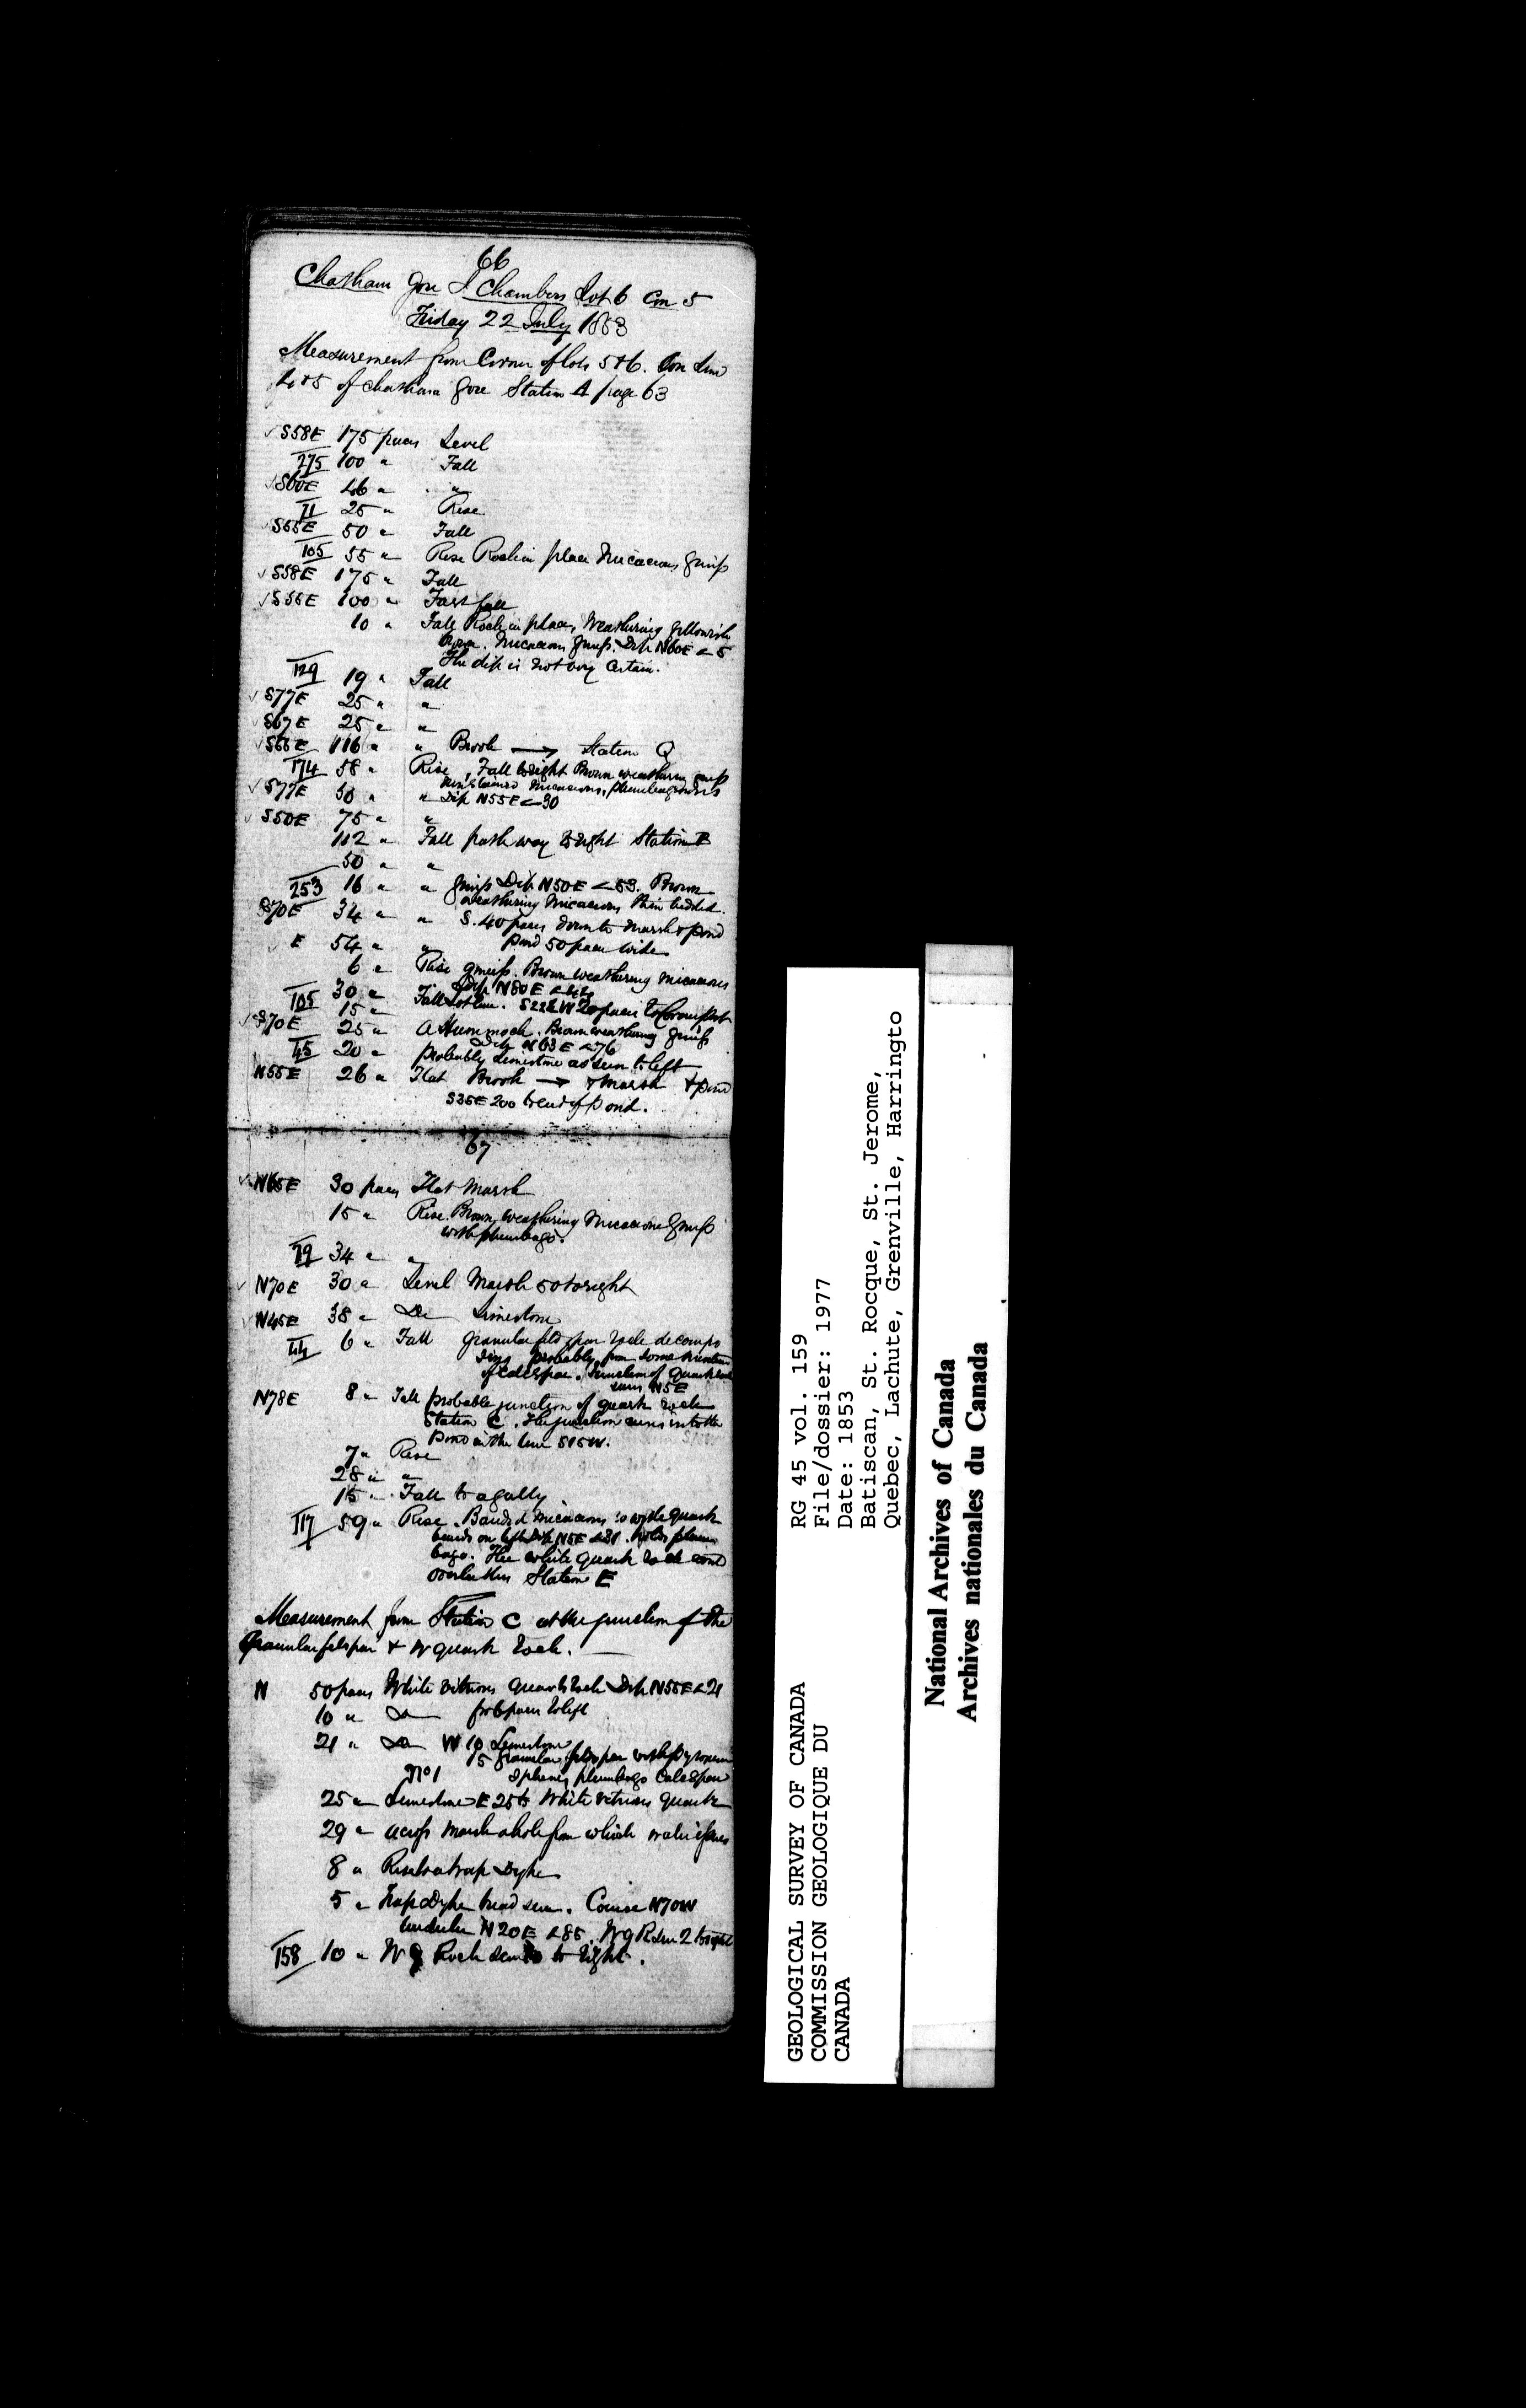 66
Chatham Gore J Chambers Lot 6 Con 5
Friday 22 July 1853
Measurement from Corner of lots 5 & 6. Con Line
4 & 5 of Chatham Gore Station A page 63
S58E 175 paces Level
275 100 " Fall
S60E 46 " "
71 25 " Rise
S55E 50 " Fall
105 55 " Rise Rock in place Micaceous gneiss
S58E 175 " Fall
S55E 100 " Fast fall
10 " Fall Rock in place, Weathering yellowish
Micaceous gneiss. Dip N60E < 5
The dip is not very certain.
129 19 " Fall
S77E 25 " "
S67E 25 " "
S65E 116 " " Brook → Station Q
174 58 " Rise, Fall to right Brown weathering gneiss
Micaceous, plumbaginous
S77E 30 " " Dip N55E < 30
S50E 75 " "
112 " Fall pathway to right Station B
50 " "
253 16 " " gneiss Dip N50E < 53. Brown
weathering Micaceous thin bedded.
S70E 34 " " S. 40 paces down to Marsh & pond
E 54 " " Pond 50 paces wide
6 " Rise gneiss. Brown weathering micaceous
Dip N80E < 44
105 30 " Fall
15 "
S70E 25 " A Hummock. Brown weathering gneiss
Dip N63E < 76
45 20 " probably Limestone as seen to left
N55E 26 " Flat Brook → & Marsh & pond
S35E 200 to end of pond.
67
N65E 30 paces Flat Marsh
15 " Rise. Brown weathering Micaceous gneiss
with plumbago.
79 34 " "
N70E 30 " Level Marsh 50 to right
N45E 38 " Do Limestone
44 6 " Fall Granular feldspar rock decompo
sing probably from some mixture
of calcspar. Junction of quartz rock
runs N5E
N78E 8 " Fall probable junction of quartz rock
Station C. The junction runs into the
Pond in the line S15W.
7 " Rise
28 " "
15 " Fall to a gully
117 59 " Rise. Banded Micaceous & white quartz
bands on left Dip N5E < 31. holds plum
bago. The white quartz rock
overlies this Station E
Measurement from Station C at the junction of the
Granular felspar & W quartz rock.
N 50 paces White vitreous quartz rock Dip N55E < 21
10 " Do to left
21 " Do W 10 Limestone
15 granular felspar with pyroxene
No 1 sphene, plumbago calcspar
25 " Limestone E 25 to White vitreous quartz
29 " across marsh a hole from which water issues
8 " Rise to a trap Dyke
5 " Trap Dyke Course N70W
underlie N20E < 85. W q R seen 2 to right
158 10 " W q Rock seen 10 to right.
GEOLOGICAL SURVEY OF CANADA
COMMISSION GEOLOGIQUE DU
CANADA
RG 45 vol. 159
File/dossier: 1977
Date: 1853
Batiscan, St. Rocque, St. Jerome,
Quebec, Lachute, Grenville, Harringto
National Archives of Canada
Archives nationales du Canada